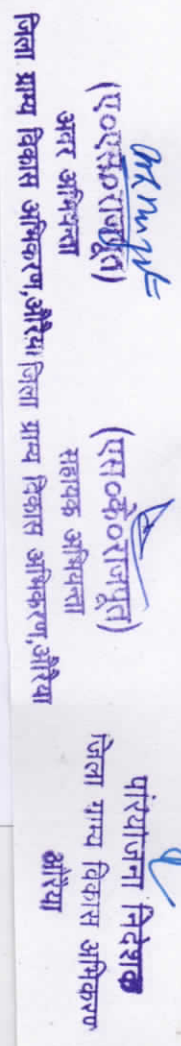 (ए०एस०राजपूत)
अवर अभियन्ता
जिला ग्राम्य विकास अभिकरण,औरैया
(एस०के०राजपूत)
सहायक अभियन्ता
जिला ग्राम्य विकास अभिकरण,औरैया
परियोजना निदेशक
जिला ग्राम्य विकास अभिकरण
औरैया